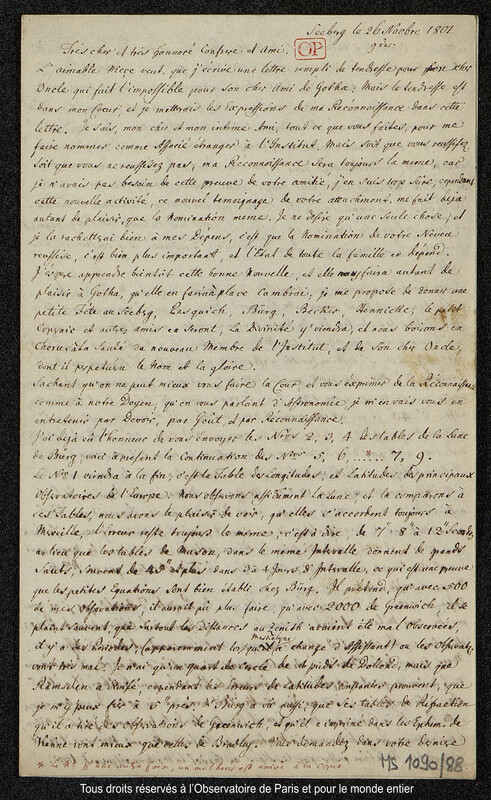 Seeberg le 26 Novbre 1801
9 déc.
OP
Très cher et très honnoré Confrere et Ami.
L'aimable Niece veut, que j'écrive une lettre rempli de tendresse pour son cher
Oncle qui fait l'impossible pour son cher ami de Gotha. Mais la tendresse est
dans mon Coeur, et je mettrais les Expressions de ma Reconnoissance dans cette
lettre. Je sais mon cher et mon intime Ami, tout ce que vous faites, pour me
faire nommer comme Associé étranger à l'Institut. Mais soit que vous reussissez
soit que vous ne reussissez pas, ma Reconnoissance sera toujours la meme, car
je n'avais pas besoin de cette preuve de votre amitié, j'en suis trop sûre, cependant
cette nouvelle activité, ce nouvel temoignage de votre attachement, me fait deja
autant de plaisir, que la Nomination meme. Je ne desire qu'une seule chose, et
je la rachetterai bien à mes Depens, c'est que la Nomination de votre Neveu
reussisse, c'est bien plus important, et l'Etat de toute la famille en depend.
J'espere apprendre bientôt cette bonne Nouvelle, et elle nous faira autant de
plaisir à Gotha, qu'elle en faira à place Cambrai, je me propose de donner une
petite Fete au Seeberg, Pasquich, Bürg, Becker, Henriette, le petit
Copernic et autres amis en seront, la Divinité y viendra, et nous boirons en
Chorus à la Santé du nouveau Membre de l'Institut, et de son cher Oncle,
dont il perpetuera le Nom et la gloire.
Sachant qu'on ne peut mieux vous faire la Cour et vous exprimer de la Reconnaissance
comme à notre Doyen, qu'en vous parlant d'Astronomie, je m'en vais vous en
entretenir par Devoir, par Goût, et par Reconnaissance.
J'ai dejà eû l'honneur de vous envoyer les Nros 2, 3, 4 des tables de la Lune
de Bürg, voici à present la Continuation des Nros 5, 6, ..*.. 7, 9.
Le Nro 1 viendra à la fin, c'est la Table des Longitudes, et Latitudes des principaux
Observatoires de l'Europe. Nous observons assidument la Lune, et la comparons à
ces Tables, nous avons le plaisir de voir, qu'elles s'accordent toujours à
Merveille, l'Erreur reste toujours la meme, c'est à dire, de 7" 8" à 12" Secondes,
au lieu que les tables de Mason, dans le meme Intervalle donnent de grands
Sauts, souvent de et plus dans 3 à 4 Jours d'Intervalle, ce qui est une preuve
que les petites Equations sont bien établi chez Bürg. Il pretend, qu'avec 500
de mes Observations, il auroit pû plus faire, qu'avec 2000 de Greenwich, il se
plaint souvent, que surtout les Distances au Zenith avoient été mal observées,
il y a des Periodes, (apparemment lorsque Maskelyne à changé d'Assistant) ou les Observat.
vont très mal. Je n'ai qu'un quart de Cercle de pieds de Dollond, mais que
Ramsden a divisé cependant les Erreurs de Latitudes constantes prouvent, que
je m'y peux fier à près. Mr Bürg a vû aussi, que ses tables de Refraction
qu'il a tiré des observations de Greenwich, et qu'il a imprimé dans les Ephem. de
Vienne vont mieux que celles de Bradley. Vous demandez dans votre derniere
* Le No 8 une autre fois, un malheur est arrivé à la copie
MS 1090/88
Tous droits réservés à l'Observatoire de Paris et pour le monde entier